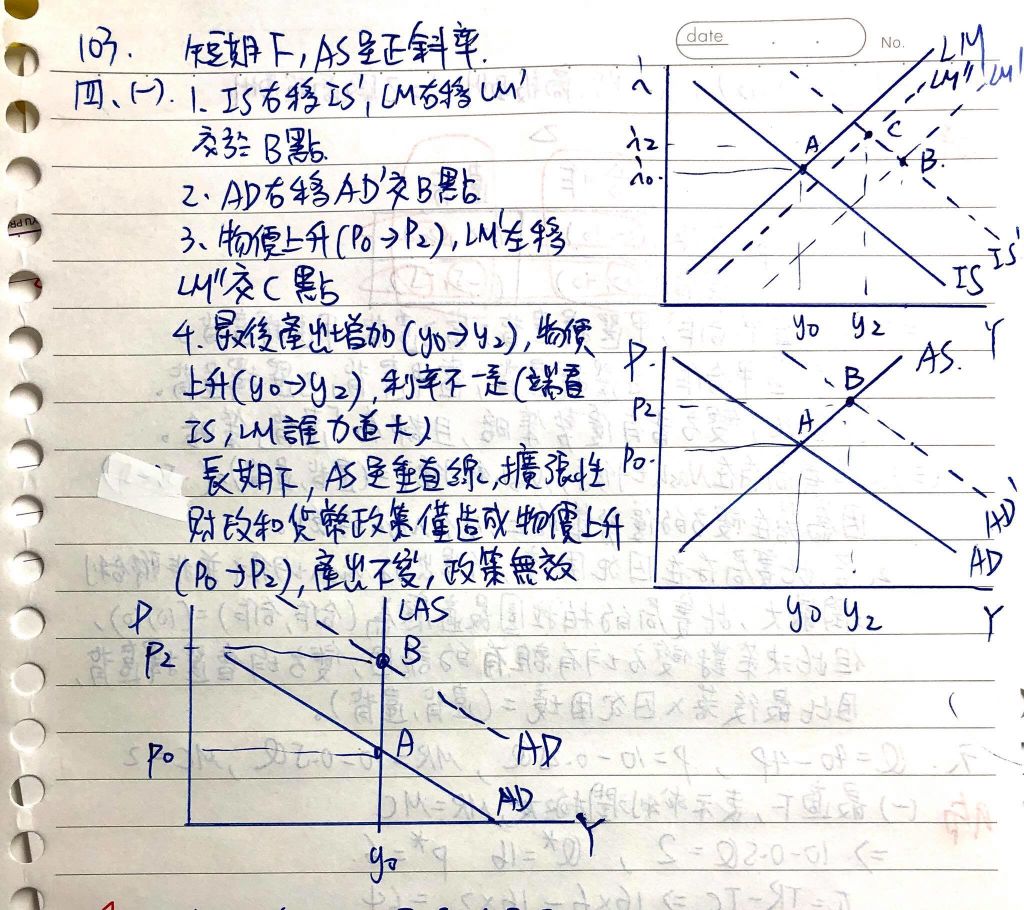 date . . . No.
103. 短期下, AS是正斜率.
四、(一). 1. IS右移IS', LM右移LM'
交於B點.
2、AD右移AD'交B點
3、物價上升(P0→P2), LM'左移
LM''交C點
4. 最後產出增加(y0→y2), 物價
上升(y0→y2), 利率不一定(端看
IS, LM誰力道大)
長期下, AS是垂直線, 擴張性
財政和貨幣政策僅造成物價上升
(P0→P2), 產出不變, 政策無效
i LM LM'' LM'
i2 A C
i0. B.
IS IS'
y0 y2 Y
P. AS.
P2 B
P0. A
AD'
AD
y0 y2 Y
P LAS
P2 B
P0 A AD
AD
y0 Y